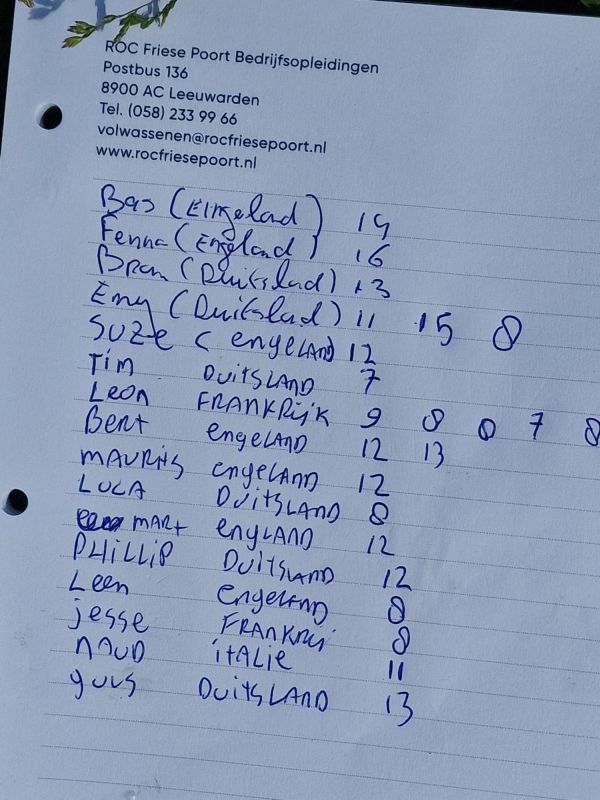 ROC Friese Poort Bedrijfsopleidingen
Postbus 136
8900 AC Leeuwarden
Tel. (058) 233 99 66
volwassenen@rocfriesepoort.nl
www.rocfriesepoort.nl
Bas (Engelad) 14
Fenna (Engeland) 16
Bram (Duitslad) 13
Emy (Duitslad) 11 15 8
SUZE (engeLAND 12
Tim DUITSLAND 7
Leon FRANKRijK 9 8 0 7 8
Bert engeLAND 12 13
MAURitS engeLAND 12
LUCA DUitSLAND 8
MARt engLAND 12
PHiLLiP DUitSLAND 12
Leen engeLAND 8
jesse FRANKRij 8
NAUD itALie 11
guus DUitSLAND 13